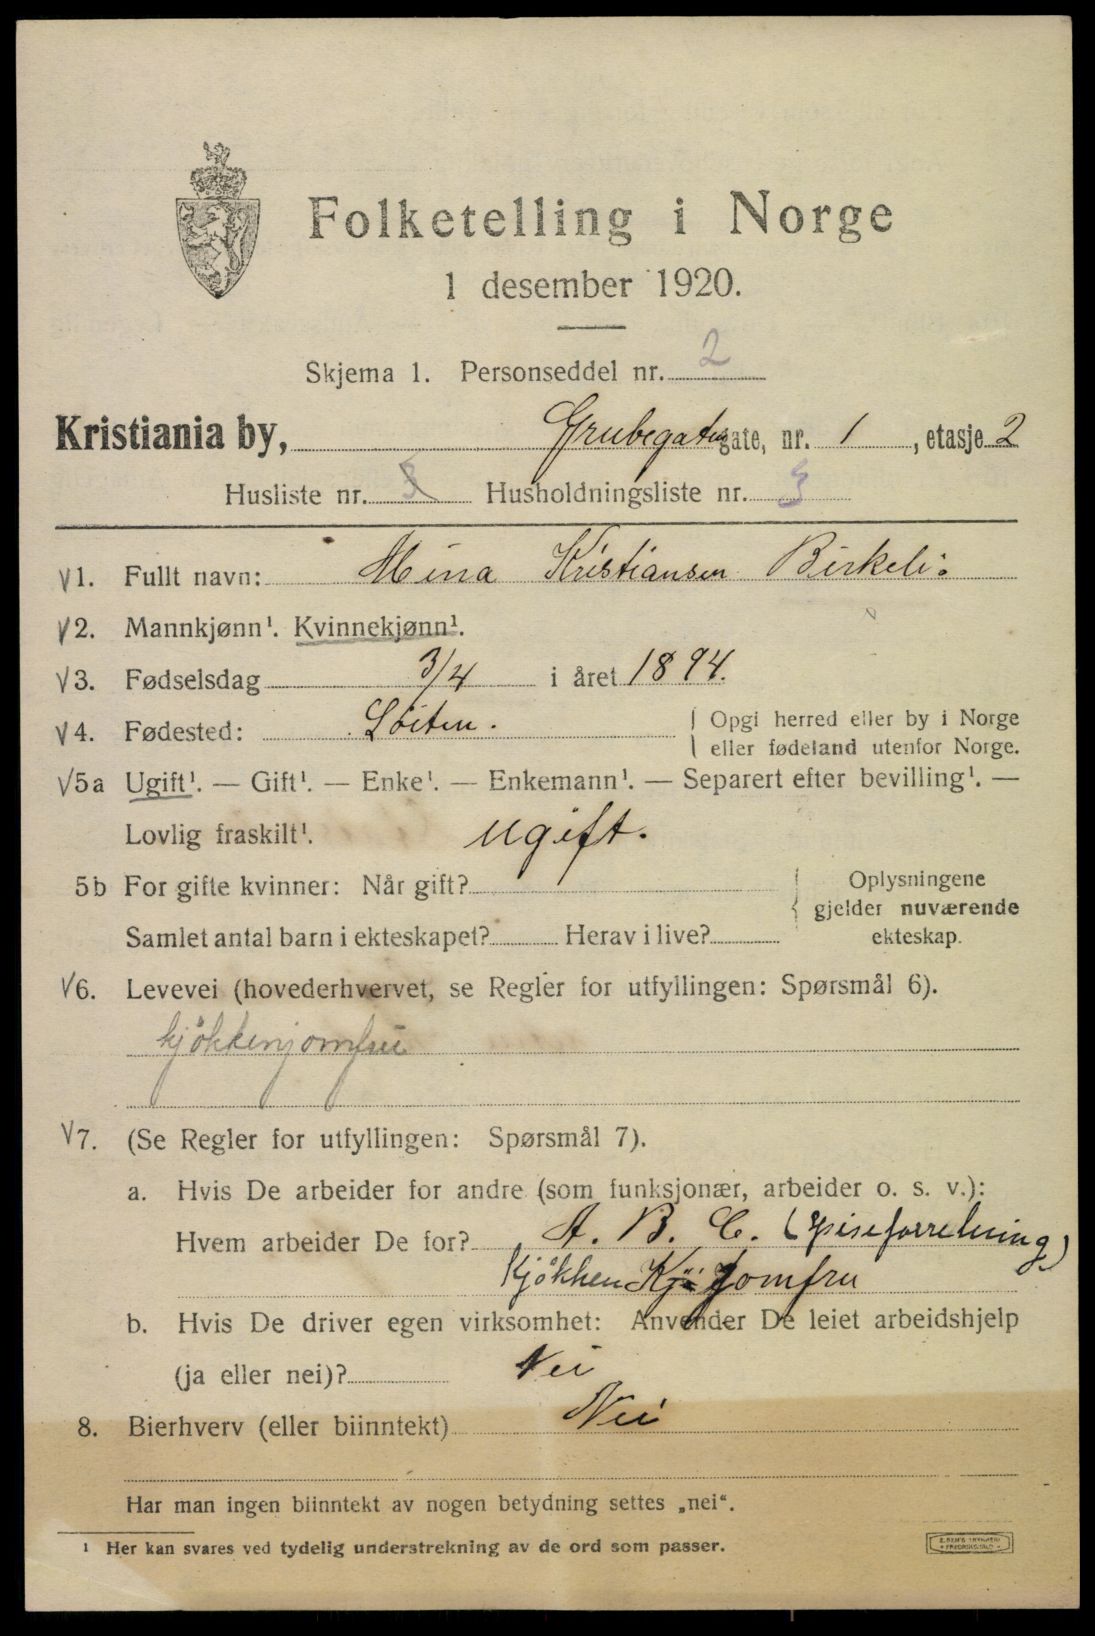 Folketelling i Norge
1 desember 1920.
Skjema 1. Personseddel nr. 2
Kristiania by, Grubegaten gate, nr. 1, etasje 2
Husliste nr. 3 Husholdningsliste nr. 3
V1. Fullt navn: Mina Kristiansen Birkeli.
V2. Mannkjønn¹. Kvinnekjønn¹.
V3. Fødselsdag 3/4 i året 1894.
V4. Fødested: Löiten. Opgi herred eller by i Norge
eller fødeland utenfor Norge.
V5a Ugift¹. — Gift¹. — Enke¹. — Enkemann¹. — Separert efter bevilling¹. —
Lovlig fraskilt¹. ugift.
5b For gifte kvinner: Når gift? Oplysningene
gjelder nuværende
Samlet antal barn i ekteskapet? Herav i live? ekteskap.
V6. Levevei (hovederhvervet, se Regler for utfyllingen: Spørsmål 6).
kjökkenjomfru
V7. (Se Regler for utfyllingen: Spørsmål 7).
a. Hvis De arbeider for andre (som funksjonær, arbeider o. s. v.):
Hvem arbeider De for? A. B. C. (Spiseforretning)
Kjökken Kjö Jomfru
b. Hvis De driver egen virksomhet: Anvender De leiet arbeidshjelp
(ja eller nei)? Nei
8. Bierhverv (eller biinntekt) Nei
Har man ingen biinntekt av nogen betydning settes „nei“.
¹ Her kan svares ved tydelig understrekning av de ord som passer.